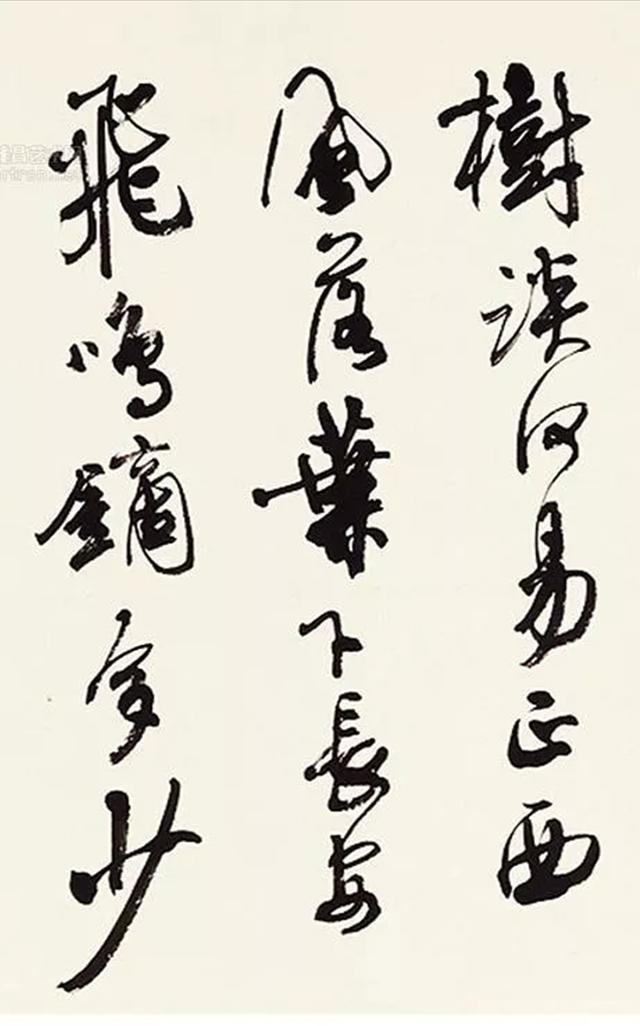 樹談何易正西
風落葉下長安
飛鳴鏑多少